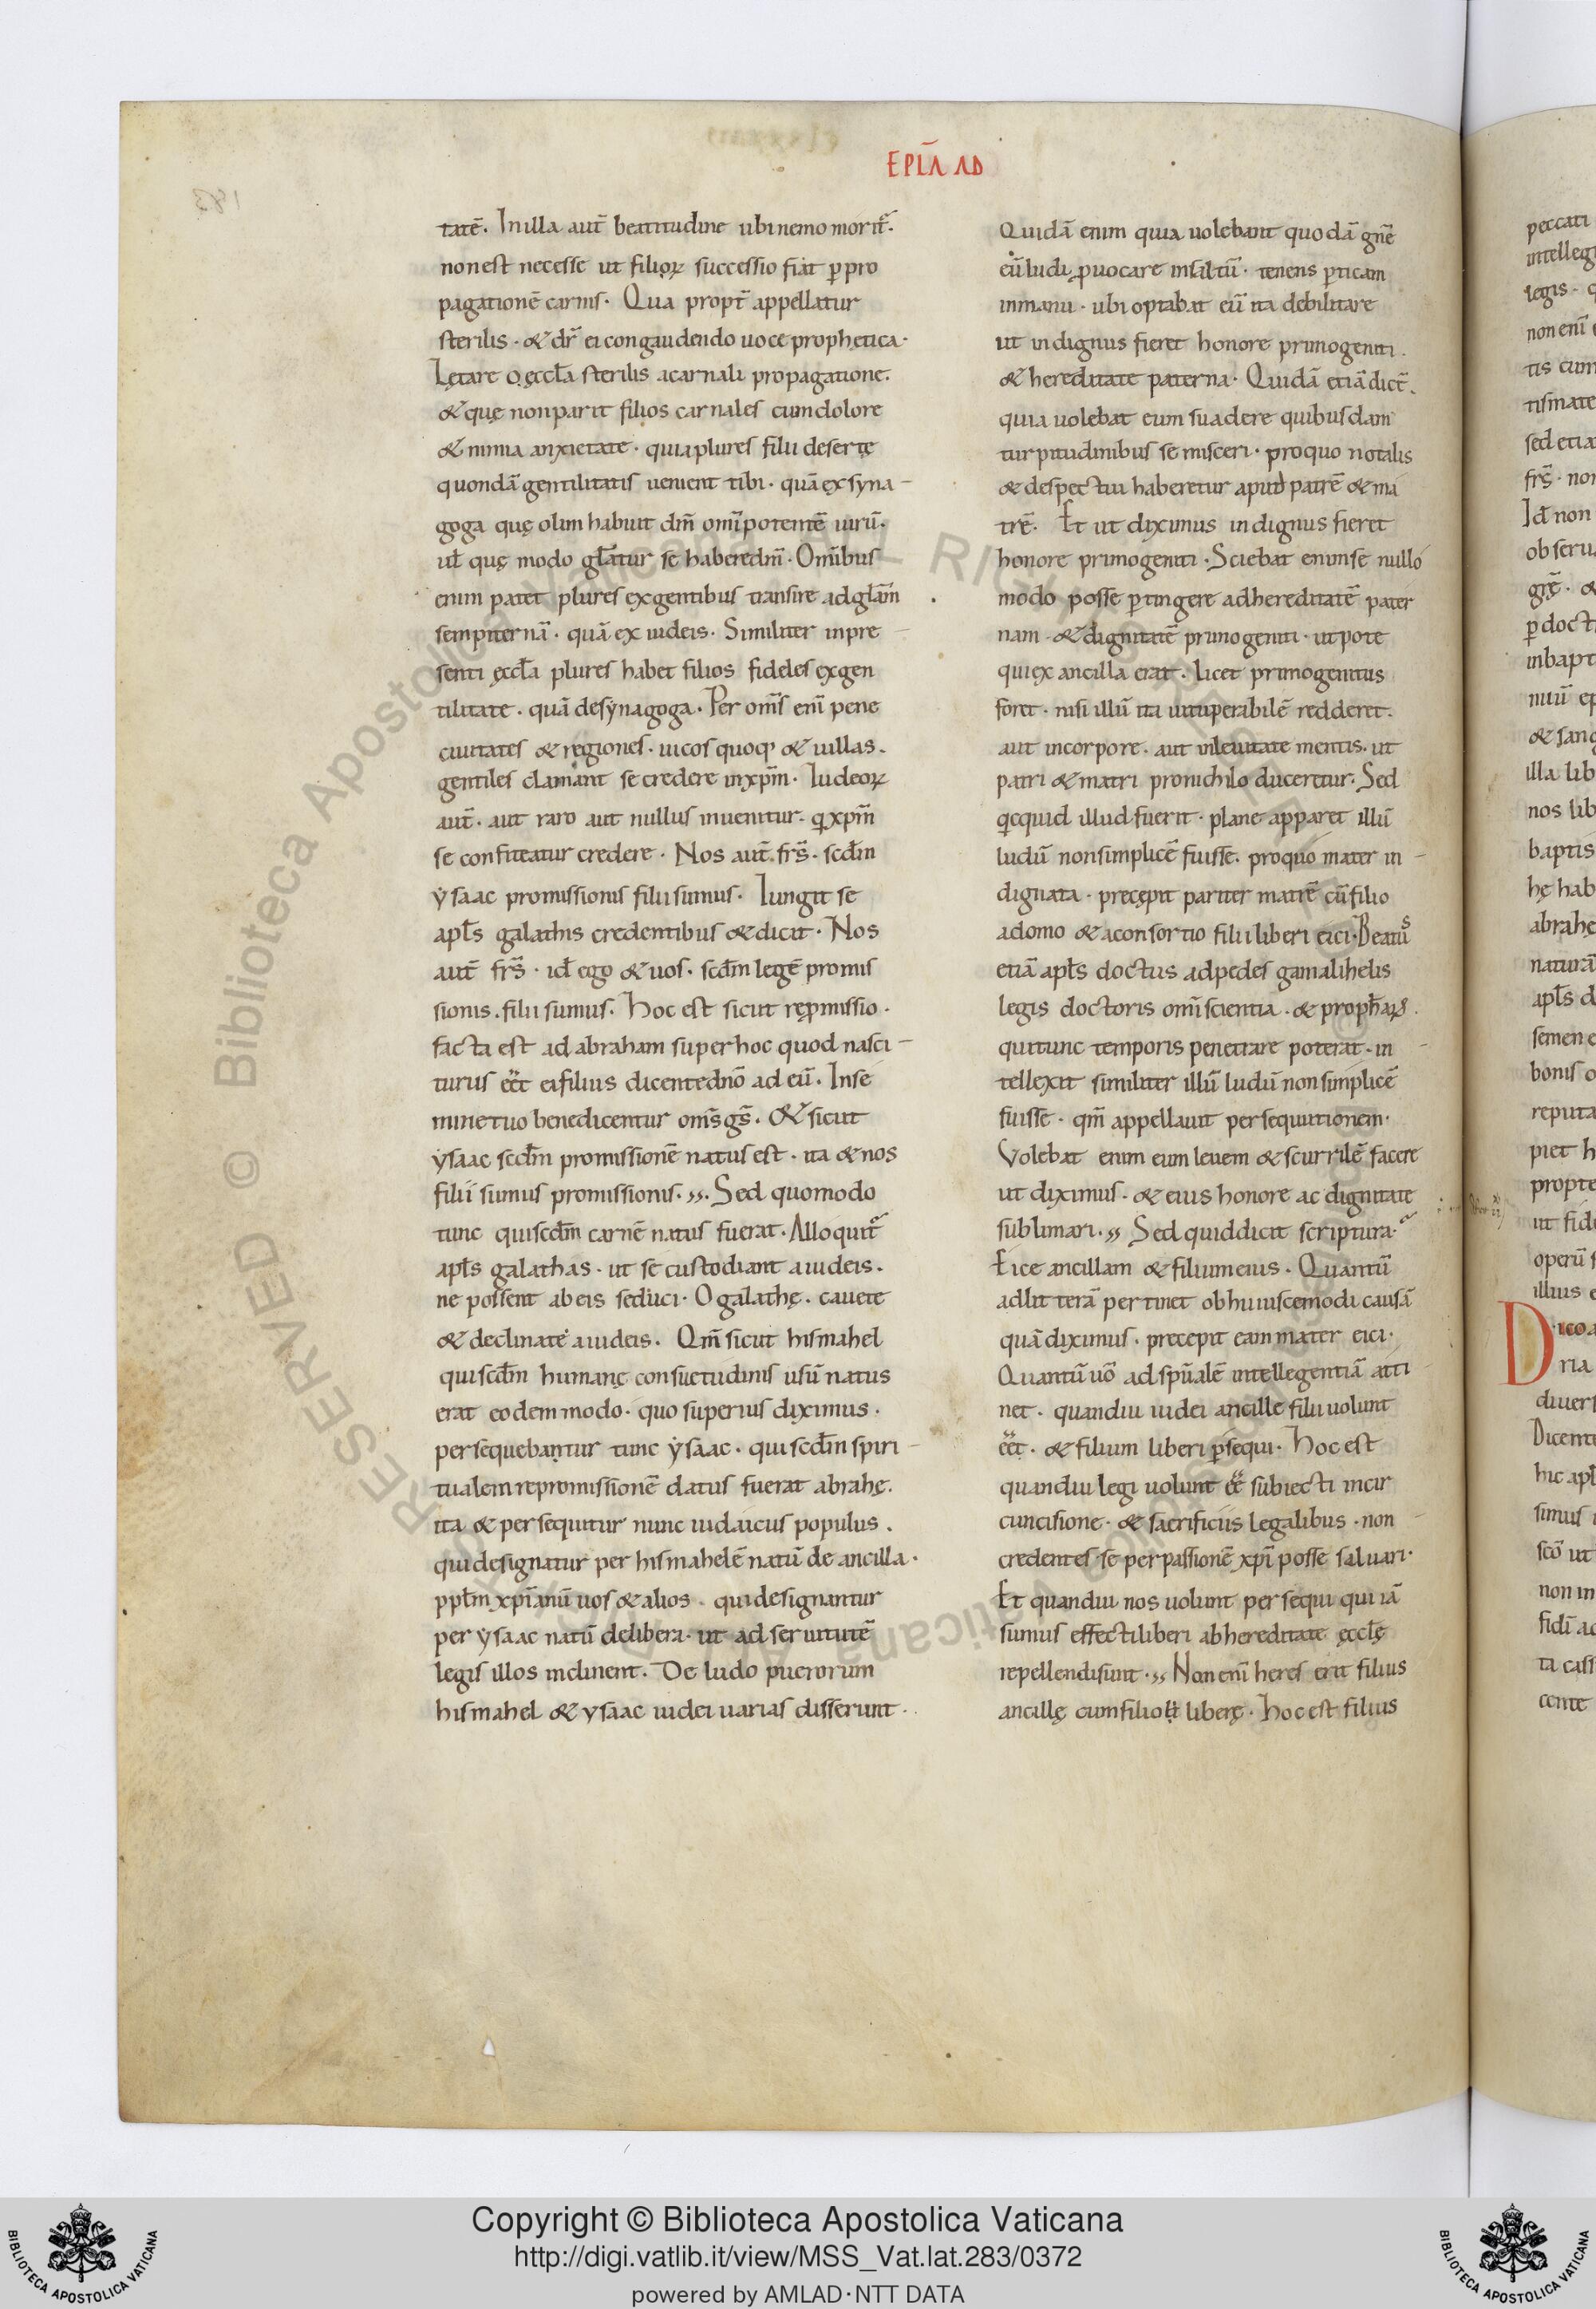 EPLA AD
tatē. In illa aut̄ beatitudine ubi nemo morit᷑.
non est necesse ut filioꝝ successio fiat ꝑ pro
pagationē carnis. Qua propt̄ appellatur
sterilis. & dr̄ ei congaudendo uoce prophetica.
Lętare o ęccla sterilis a carnali propagatione.
& quę non parit filios carnales cum dolore
& nimia anxietate. quia plures filii desertę
quondā gentilitatis uenient tibi. quā ex syna-
goga quę olim habuit dm̄ omīpotentē uirū.
ul quę modo gl̄atur se habere dm̄. Omībus
enim patet plures ex gentibus transire ad gl̄am
sempiternā. quā ex iudeis. Similiter in pre-
senti ęccl̄a plures habet filios fideles ex gen
tilitate. quā de synagoga. Per om̄s enī pene
ciuitates & regiones. uicos quoq; & uillas.
gentiles clamant se credere in xp̄m. Iudeoꝝ
aut̄. aut raro aut nullus inuenitur. q xp̄m
se confiteatur credere. Nos aut̄ frs̄. scd̄m
ysaac promissionis filii sumus. Iungit se
apl̄s galathis credentibus & dicit. Nos
aut̄ frs̄. id̄ ego & uos. scd̄m legē promis
sionis. filii sumus. Hoc est sicut reꝓmissio.
facta est ad abraham super hoc quod nasci-
turus eēt ei filius dicente dn̄o ad eū. In se
mine tuo benedicentur om̄s gs̄. & sicut
ysaac scd̄m promissionē natus est. ita & nos
filii sumus promissionis. Sed quomodo
tunc qui scd̄m carnē natus fuerat. Alloquit᷑
apl̄s galathas. ut se custodiant a iudeis.
ne possent ab eis seduci. O galathę. cauete
& declinate a iudeis. Qm̄ sicut hismahel
qui scd̄m humanę consuetudinis usū natus
erat eodem modo. quo superius diximus.
persequebantur tunc ysaac. qui scd̄m spiri-
tualem repromissionē datus fuerat abrahę.
ita & persequitur nunc iudaicus populus.
qui designatur per hismahelē natū de ancilla.
ppl̄m xpīanū uos & alios. qui designantur
per ysaac natū de libera. ut ad seruitutē
legis illos inclinent. De ludo puerorum
hismahel & ysaac iudei uarias disserunt.
Quidā enim quia uolebant quodā gn̄e
eū ludi ꝓuocare
tenens ꝑticam
in manu. ubi optabat eū ita debilitare
ut indignus fieret honore primogeniti.
& hereditate paterna. Quidā etiā dict̄.
quia uolebat eum suadere quibusdam
turpitudinibus se misceri. pro quo notalis
& despectui haberetur apud patrē & ma
trē. Et ut diximus indignus fieret
honore primogeniti. Sciebat enim se nullo
modo posse ꝑtingere ad hereditatē pater
nam. & dignitatē primogeniti. utpote
qui ex ancilla erat. licet primogenitus
foret. nisi illū ita uituperabilē redderet.
aut in corpore. aut in leuitate mentis. ut
patri & matri pro nichilo duceretur. Sed
qcquid illud fuerit. plane apparet illū
ludū non simplicē fuisse. pro quo mater in-
dignata. precępit pariter matrē cū filio
a domo & a consortio filii liberi eici. Beatus
etiā apl̄s doctus ad pedes gamalihelis
legis doctoris omī scientia. & prophaꝝ.
qui tunc temporis penetrare poterat. in-
tellexit similiter illū ludū non simplicē
fuisse. qm̄ appellauit persequutionem.
Volebat enim eum leuem & scurrilē facere
ut diximus. & eius honore ac dignitate
sublimari. Sed quid dicit scriptura.
Eice ancillam & filium eius. Quantū
ad litterā pertinet ob huiuscemodi causā
quā diximus. precepit eam mater eici.
Quantū uō ad spūalē intellegentiā atti-
net. quandiu iudei ancille filii uolunt
eēt. & filium liberi ꝑsequi. Hoc est
quandiu legi uolunt eē subiecti in cir
cuncisione. & sacrificiis legalibus. non-
credentes se per passionē xpī posse saluari.
Et quandiu nos uolunt persequi qui iā
sumus effecti liberi ab hereditate ęcclę
repellendi sunt. Non enī heres erit filius
ancillę cum filio liberę. Hoc est filius
Copyright © Biblioteca Apostolica Vaticana
http://digi.vatlib.it/view/MSS_Vat.lat.283/0372
powered by AMLAD·NTT DATA